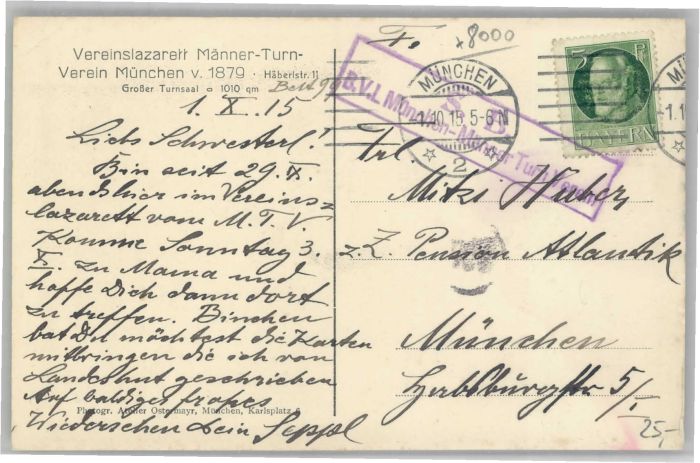 Vereinslazarett Männer-Turn-
Verein München v. 1879 · Häberlstr. 11
Großer Turnsaal a 1010 qm Bett 99
1. X. 15
Liebs Schwesterl!
Bin seit 29. IX.
abends hier im Vereins=
lazarett vom M. T. V.
Komme Sonntag 3.
X. zu Mama und
hoffe Dich dann dort
zu treffen. Binchen
bat Du möchtest die Karten
mitbringen die ich von
Landshut geschrieben
Auf baldiges frohes
Wiedersehen Dein Seppl
Photogr. Atelier Ostermayr, München, Karlsplatz 6
F. x8000
MÜNCHEN
1.10.15.5-6N
2
S B
B.V.L München-Männer Turn Verein
5 P
BAYERN
Frl.
Mitzi Huber
z. Z. Pension Atlantik
München
Habsburgstr 5/I
25,-